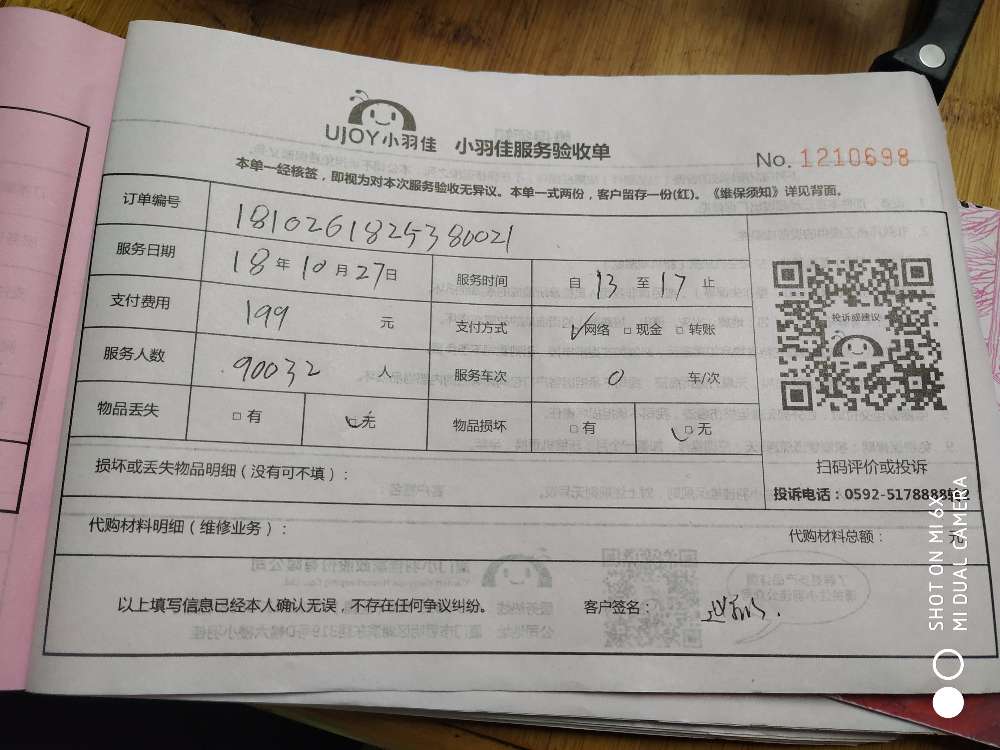 UJOY小羽佳 小羽佳服务验收单
No. 1210698
本单一经核签，即视为对本次服务验收无异议。本单一式两份，客户留存一份(红)。《维保须知》详见背面。
订单编号 1810261825380021
服务日期 18年10月27日 服务时间 自13至17止
支付费用 199元 支付方式 网络 现金 转账
服务人数 90032人 服务车次 0 车/次
物品丢失 有 无 物品损坏 有 无
投诉或建议
扫码评价或投诉
损坏或丢失物品明细（没有可不填）：
投诉电话：0592-5178888转2
代购材料明细（维修业务）：
代购材料总额： 元
以上填写信息已经本人确认无误，不存在任何争议纠纷。 客户签名：
SHOT ON MI 6X
MI DUAL CAMERA